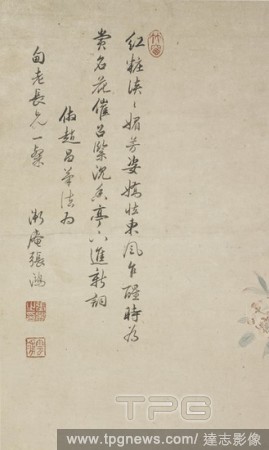 紅粧淡々媚芳姿嬌怯東風乍醒時為
賞名花催召緊沉香亭下進新詞
倣趙昌筆法為
甸老長兄一粲
庵張
TPG
www.tpgnews.com / 達志影像